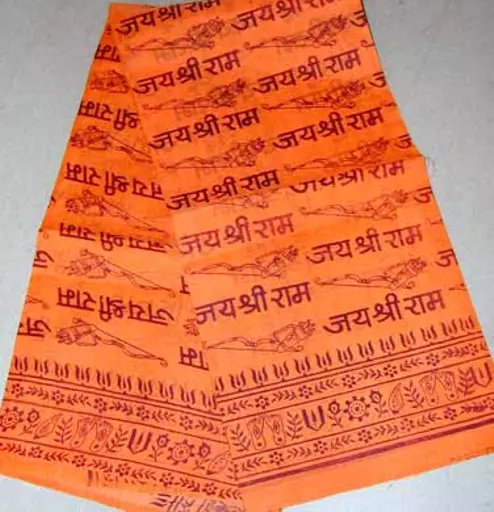 जय श्री राम जय श्री राम
जय श्री राम जय श्री राम
जय श्री राम जय श्री राम
जय श्री राम जय श्री राम
जय श्री राम जय श्री राम
जय श्री राम जय श्री राम
श्री राम
जय श्री राम
जय श्री राम
राम